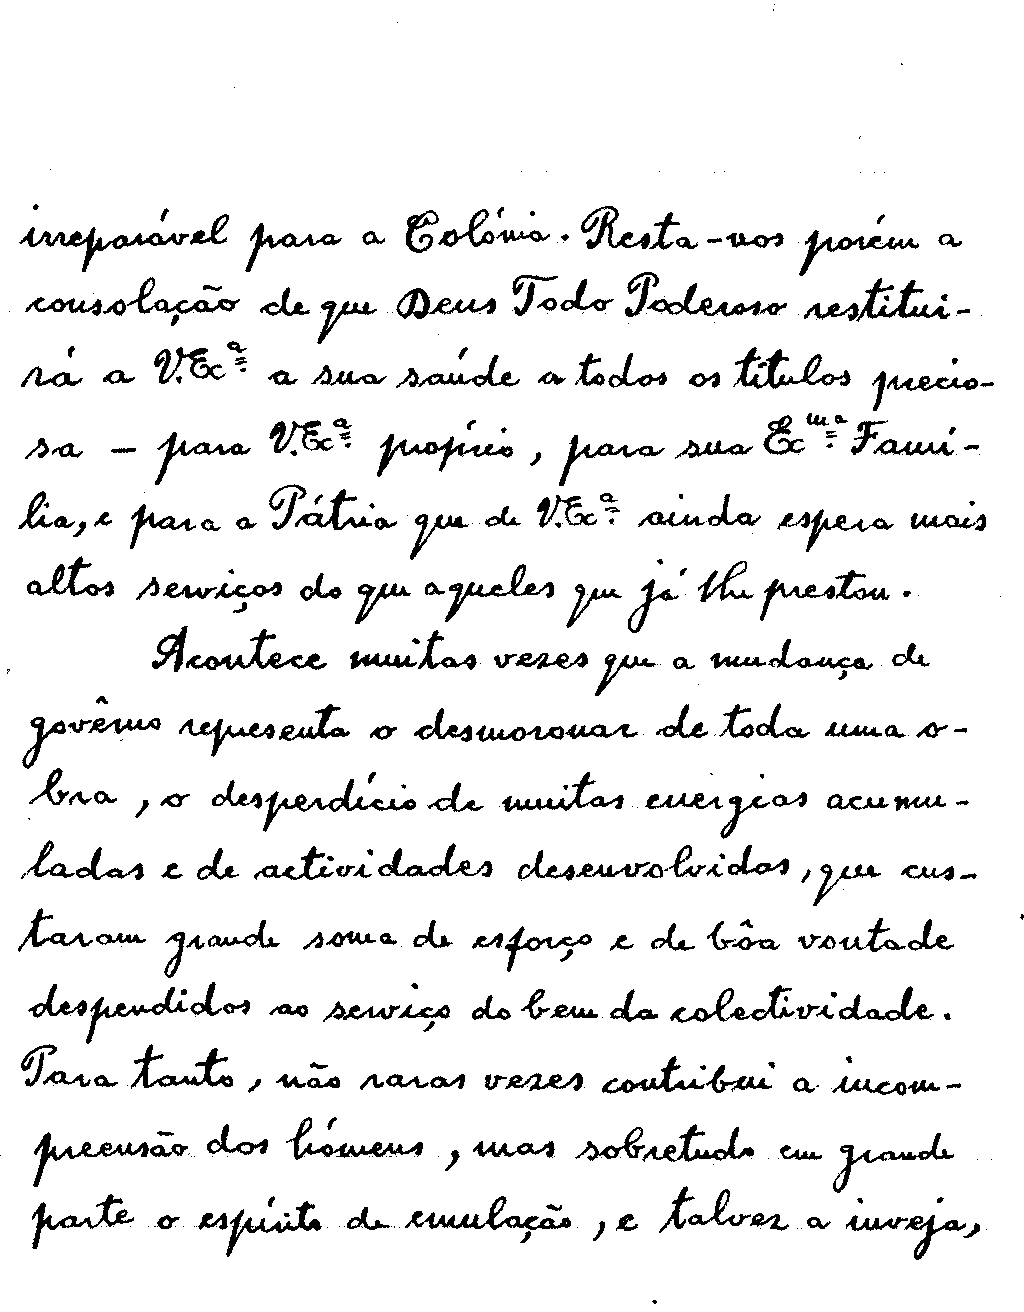 irreparável para a Colónia. Resta-nos porém a
consolação de que Deus Todo Poderoso restitui-
rá a V.Exª a sua saúde a todos os títulos precio-
sa – para V.Exª próprio, para sua Exᵐª Famí-
lia, e para a Pátria que de V.Exª ainda espera mais
altos serviços do que aqueles que já lhe prestou.
Acontece muitas vezes que a mudança de
govêrno representa o desmoronar de toda uma o-
bra, o desperdício de muitas energias acumu-
ladas e de actividades desenvolvidas, que cus-
taram grande soma de esforço e de bôa vontade
despendidos ao serviço do bem da colectividade.
Para tanto, não raras vezes contribui a incom-
preensão dos hómens, mas sobretudo em grande
parte o espírito de emulação, e talvez a inveja,